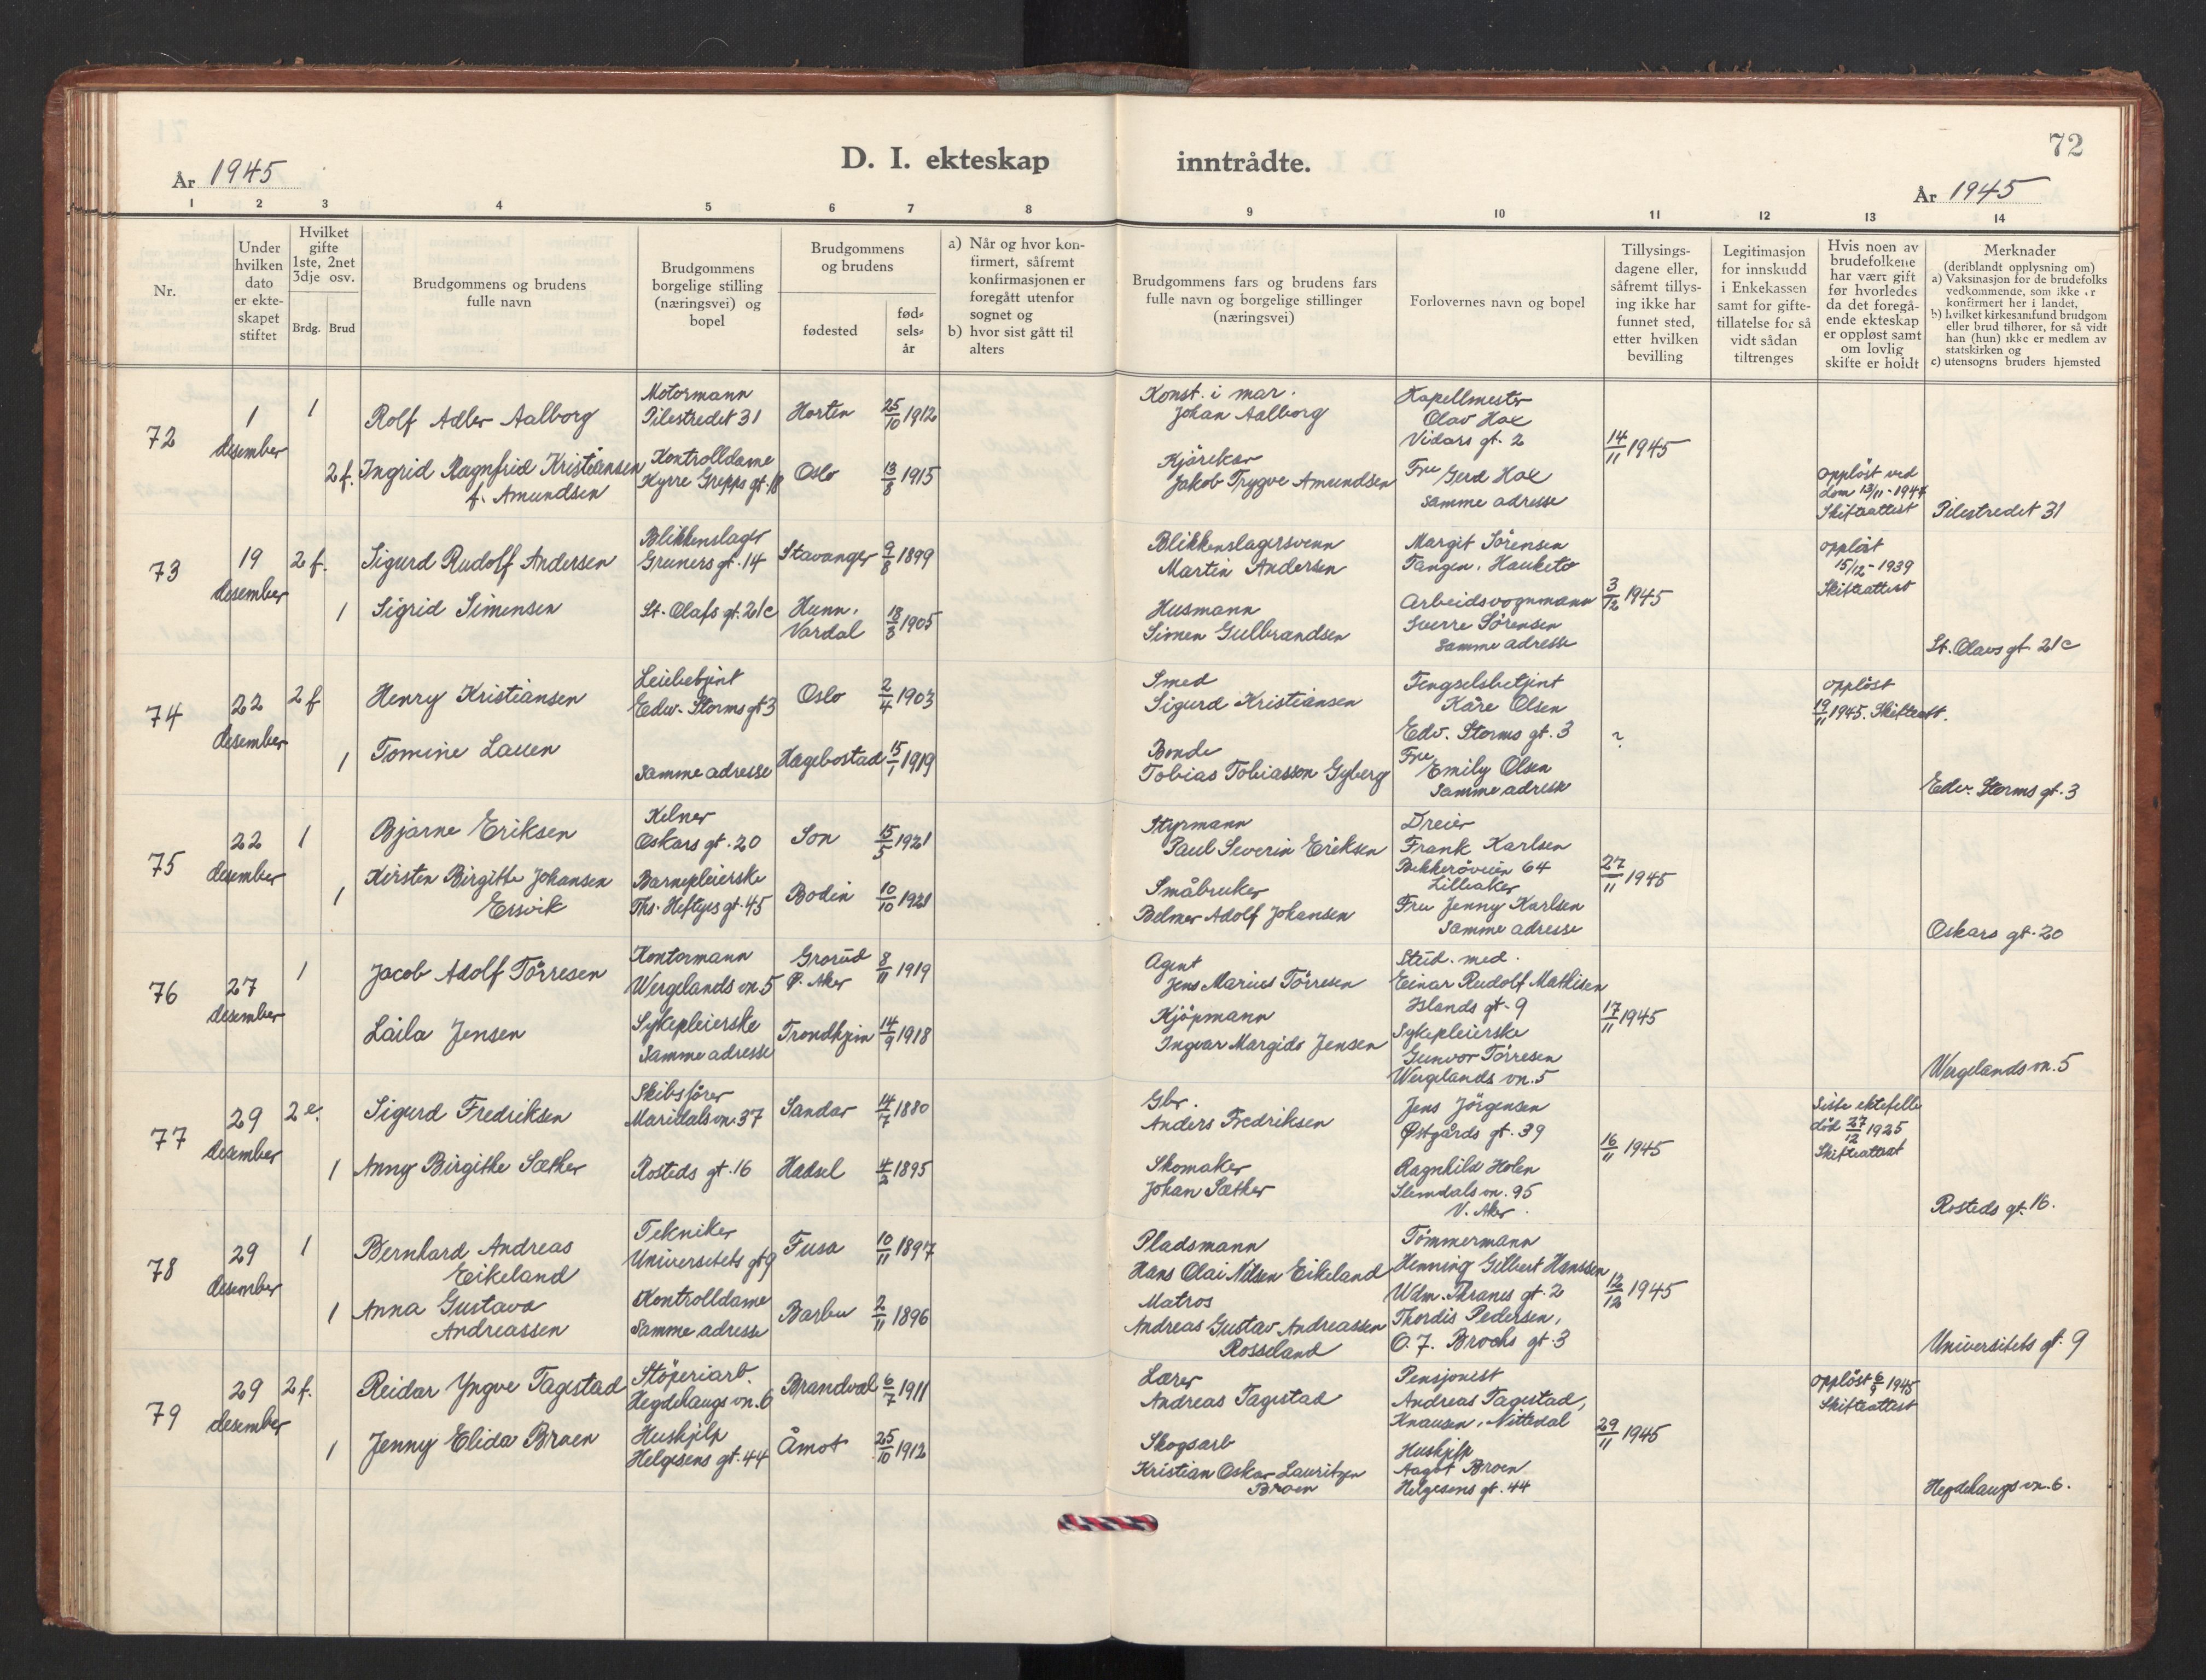 72
D. I. ekteskap inntrådte.
År 1945
År 1945
1 2 3 4 5 6 7 8 9 10 11 12 13 14
Nr.
Under
hvilken
dato
er ekte-
skapet
stiftet
Hvilket
gifte
1ste, 2net
3dje osv.
Brdg. Brud
Brudgommens og brudens
fulle navn
Brudgommens
borgelige stilling
(næringsvei) og
bopel
Brudgommens
og brudens
fødested
fød-
sels-
år
a) Når og hvor kon-
firmert, såfremt
konfirmasjonen er
foregått utenfor
sognet og
b) hvor sist gått til
alters
Brudgommens fars og brudens fars
fulle navn og borgelige stillinger
(næringsvei)
Forlovernes navn og bopel
Tillysings-
dagene eller,
såfremt tillys-
ing ikke har
funnet sted,
etter hvilken
bevilling
Legitimasjon
for innskudd
i Enkekassen
samt for gifte-
tillatelse for så
vidt sådan
tiltrenges
Hvis noen av
brudefolkene
har vært gift
før hvorledes
da det foregå-
ende ekteskap
er oppløst samt
om lovlig
skifte er holdt
Merknader
(deriblandt opplysning om)
a) Vaksinasjon for de brudefolks
vedkommende, som ikke er
konfirmert her i landet,
b) hvilket kirkesamfund brudgom
eller brud tilhører, for så vidt
han (hun) ikke er medlem av
statskirken og
c) utensogns bruders hjemsted
72
1
desember
1
Rolf Adler Aalborg
Motormann
Pilestredet 31
Horten
25/10 1912
Konst. i mar.
Johan Aalborg
Kapellmester
Olav Hox
Vidars gt. 2
14/11 1945
2 f.
Ingrid Ragnfrid Kristiansen
f. Amundsen
Kontrolldame
Kyrre Grepps gt. 18
Oslo
13/8 1915
Kjörekar
Jakob Trygve Amundsen
Fru Gerd Hox
Samme adresse
Opplöst ved
dom 13/11-1944
Skifteattest
Pilestredet 31
73
19
desember
2 f.
Sigurd Rudolf Andersen
Blikkenslager
Gruners gt. 14
Stavanger
9/8 1899
Blikkenslagersvenn
Martin Andersen
Margit Sörensen
Tangen, Hauketo
3/12 1945
opplöst
15/12-1939
Skifteattest
1
Sigrid Simensen
St. Olafs gt. 21c
Hunn,
Vardal
18/3 1905
Husmann
Simen Gulbrandsen
Arbeidsvognmann
Sverre Sörensen
Samme adresse
St. Olavs gt. 21c
74
22
desember
2 f
Henry Kristiansen
Edv. Storms gt 3
Oslo
2/4 1903
Smed
Sigurd Kristiansen
Fengselsbetjent
Kåre Olsen
Edv. Storms gt. 3
?
opplöst
19/11 1945. Skifteatt.
1
Tomine Lauen
Samme adresse
Hægebostad
15/1 1919
Bonde
Tobias Tobiasson Gyberg
Fru
Emily Olsen
Samme adresse
Edv. Storms gt. 3
75
22
desember
1
Bjarne Eriksen
Kelner
Oskars gt. 20
Son
15/5 1921
Styrmann
Paul Severin Eriksen
Dreier
Frank Karlsen
Bekkeröveien 64
Lilleaker
27/11 1945
1
Kirsten Birgitte Johansen
Ersvik
Barnepleierske
Ths. Heftyes gt. 45
Bodin
10/10 1921
Småbruker
Belmer Adolf Johansen
Fru Jenny Karlsen
Samme adresse
Oskars gt. 20
76
27
desember
1
Jacob Adolf Törresen
Kontormann
Wergelands vn. 5
Grorud
Ö. Aker
8/11 1919
Agent
Jens Marius Törresen
Stud. med.
Einar Rudolf Mathisen
Islands gt. 9
17/11 1945
Laila Jensen
Sykepleierske
Samme adresse
Trondhjem
14/9 1918
Kjöpmann
Ingvar Margido Jensen
Sykepleierske
Gunvor Törresen
Wergelands vn. 5
Wergelands vn. 5
77
29
desember
2 e.
Sigurd Fredriksen
Skibsförer
Maridalsvn. 37
Sandar
14/7 1880
Gbr.
Anders Fredriksen
Jens Jörgensen
Østgårds gt. 39
16/11 1945
Siste ektefelle
död 27/12 1925
Skifteattest
1
Anny Birgithe Sæther
Rosteds gt. 16
Hadsel
4/2 1895
Skomaker
Johan Sæther
Ragnhild Holen
Slemdalsvn. 95
V. Aker.
Rosteds gt. 16.
78
29
desember
1
Bernhard Andreas
Eikeland
Tekniker
Universitets gt 9
Fusa
10/11 1897
Pladsmann
Hans Olai Nilsen Eikeland
Tømmermann
Henning Gilbert Hanssen
Wdm. Thranes gt. 2
12/12 1945
1
Anna Gustava
Andreassen
Kontrolldame
Samme adresse
Barbu
2/11 1896
Matros
Andreas Gustav Andreassen
Rosseland
Thordis Pedersen,
O. J. Brochs gt. 3
Universitets gt. 9
79
29
desember
2 f.
Reidar Yngve Tagestad
Stöperiarb.
Hegdehaugs vn. 6
Brandval
6/7 1911
Lærer
Andreas Tagestad
Pensjonist
Andreas Tagestad,
Knausen, Nittedal
29/11 1945
opplöst 6/9 1945
Skifteattest
1
Jenny Elida Braen
Hushjelp
Helgesens gt. 44
Åmot
25/10 1912
Skogsarb
Kristian Oskar Lauritzen
Braen
Hushjelp
Aagot Broen
Helgesens gt. 44
Hegdehaugsvn. 6.